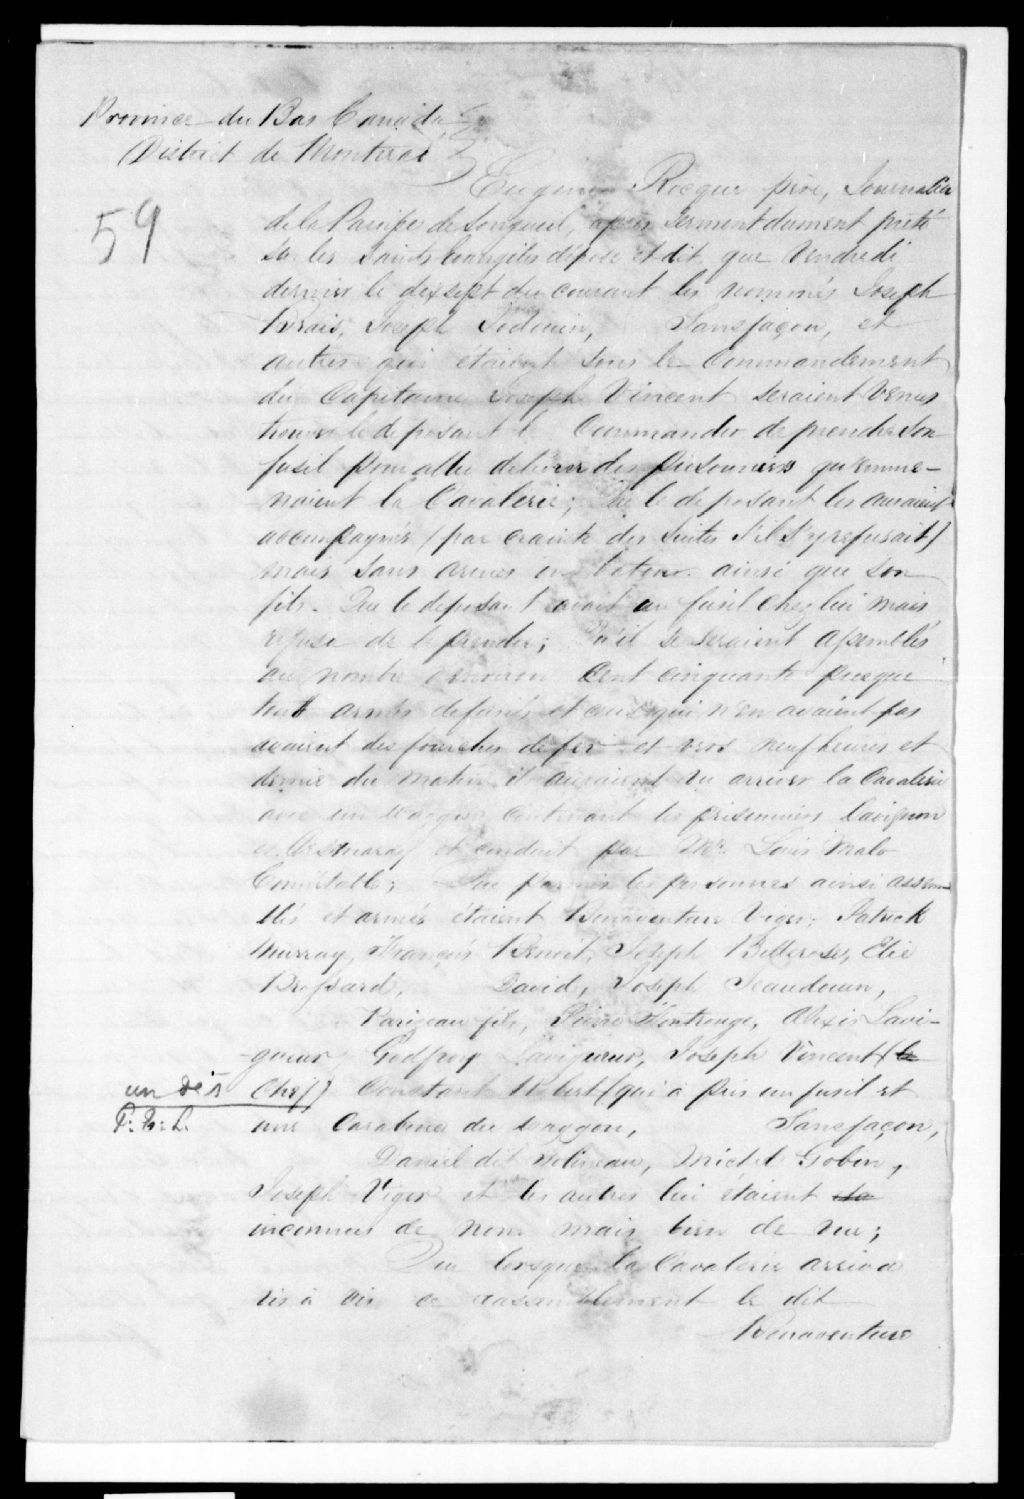 Province du Bas Canada
District de Montreal
59
Eugène Rocque père, Journalier
de la Paroisse de Longueuil, après serment dument prêté
sur les saints Evangiles dépose et dit que Vendredi
dernier le dixsept du courant les nommés Joseph
Brais, Joseph Jodouin, Sansfaçon, et
autres qui étaient sous le Commandement
du Capitaine Joseph Vincent seraient venus
trouver le deposant le Commander de prendre son
fusil pour aller delivrer des prisonniers qu'emme-
naient la Cavalerie; Que le deposant les auraient
accompagnés (par crainte des suites s'il s'y refusait)
mais sans armes ainsi que son
fils. Que le deposant avait un fusil chez lui mais
refusa de le prendre; Qu'il se seraient assemblés
au nombre d'environ Cent cinquante presque
tout armés de fusils et ceux qui n'en avaient pas
avaient des fourches de fer et vers neuf heures et
demie du matin il auraient vu arriver la Cavalerie
avec un waggon contenant les prisonniers Davignon
et Desmarais et conduit par Mr. Louis Malo
Connétable; Que parmis les personnes ainsi assem-
blés et armés étaient Bonaventure Viger, Patrick
Murray, François Benoit, Joseph Bellerose, Elie
Brossard, David, Joseph Jeaudouin,
Parizeau fils, Pierre Montrouge, Alexis Lavi-
gueur, Godfroy Lavigueur, Joseph Vincent (le
un des
chef) Constant Robert (qui a pris un fusil et
P. E. L.
une Carabine du waggon, Sansfaçon,
Daniel dit Molineau, Michel Gobin,
Joseph Viger et les autres lui étaient
inconnus de nom mais bien de vue;
Que lorsque la Cavalerie arriva
vis à vis ce rassemblement le dit
Bonaventure